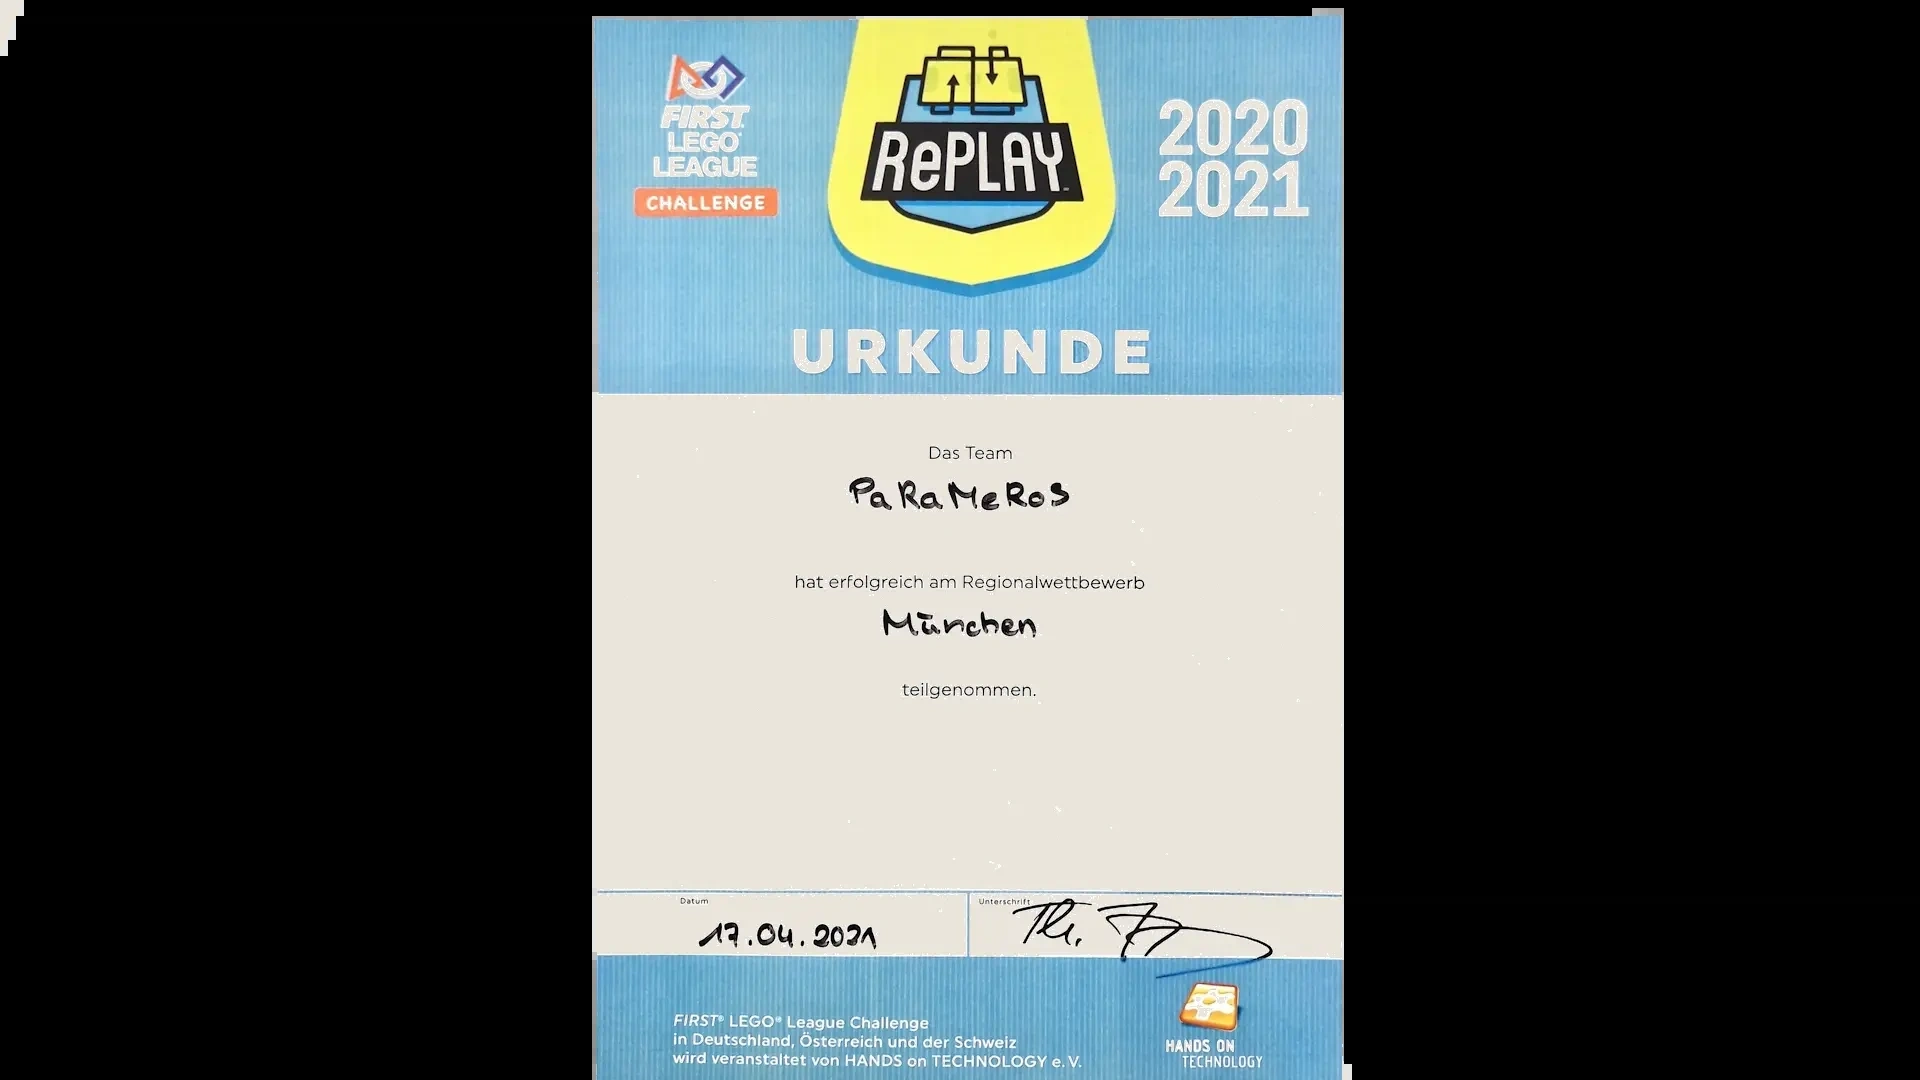 FIRST
LEGO
LEAGUE
CHALLENGE
RePLAY
2020
2021
URKUNDE
Das Team
PaRaMeRoS
hat erfolgreich am Regionalwettbewerb
München
teilgenommen.
Datum
17.04.2021
Unterschrift
FIRST® LEGO® League Challenge
in Deutschland, Österreich und der Schweiz
wird veranstaltet von HANDS on TECHNOLOGY e.V.
HANDS ON
TECHNOLOGY